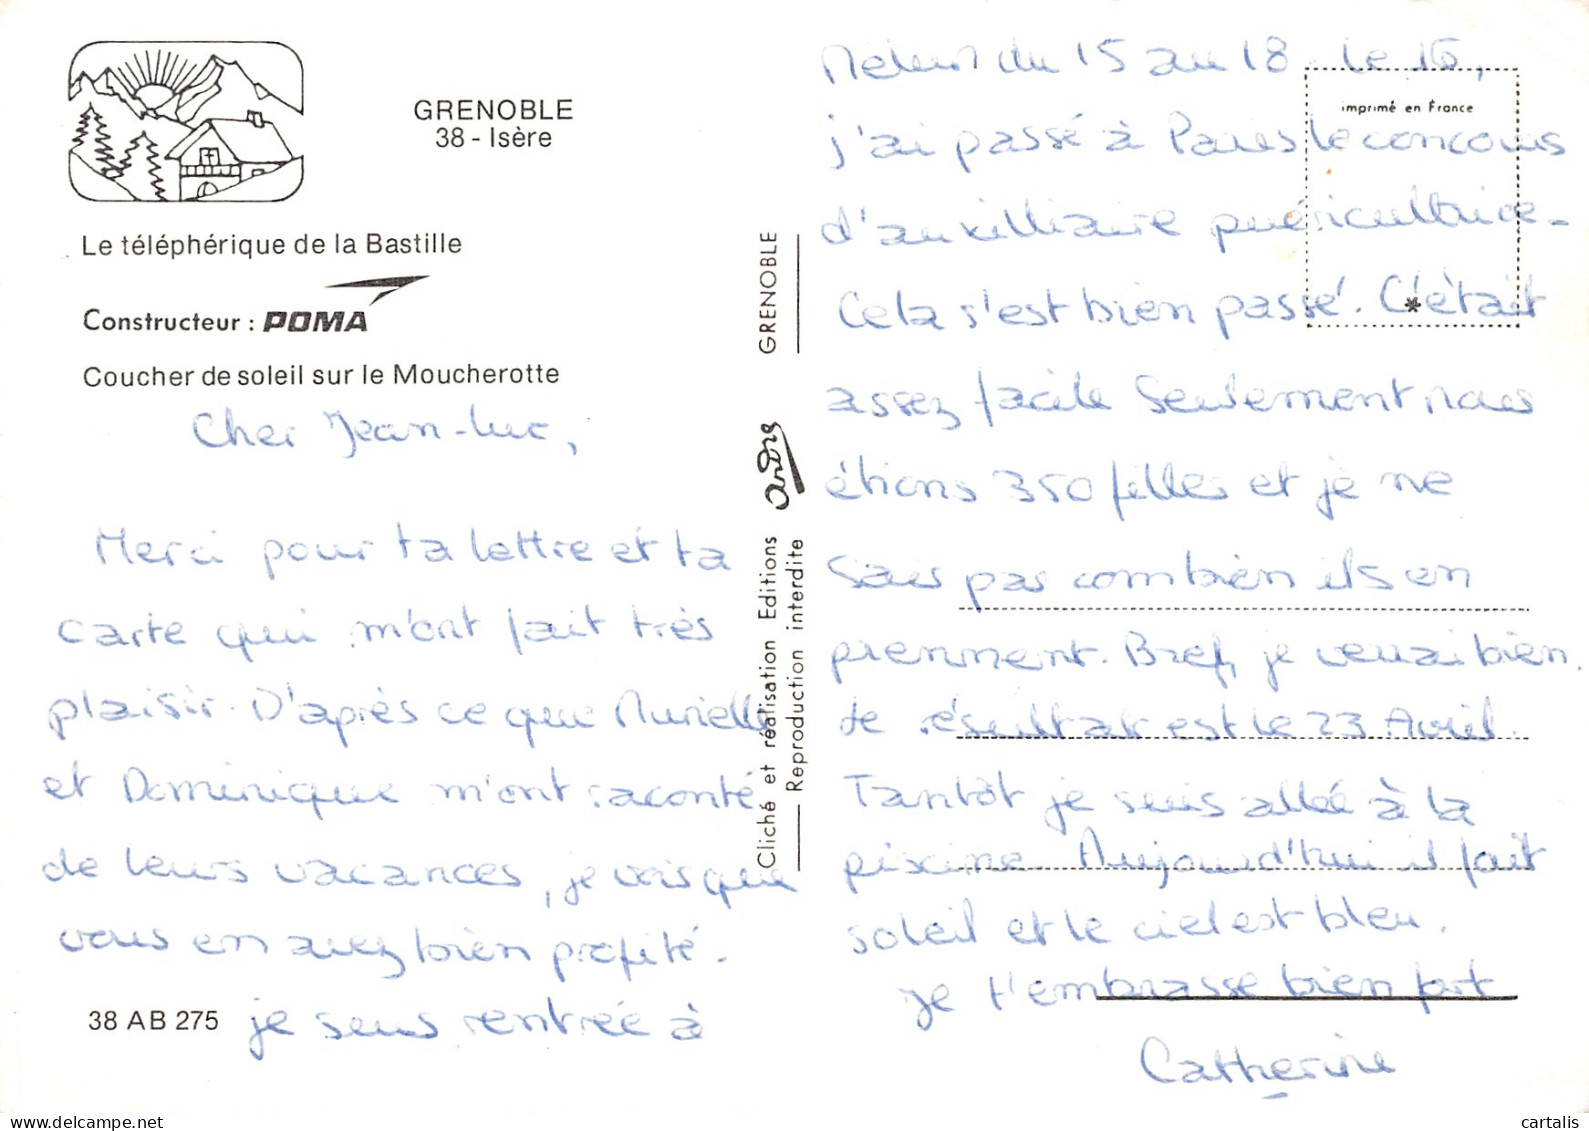 GRENOBLE
38 - Isère
Le téléphérique de la Bastille
Constructeur : POMA
Coucher de soleil sur le Moucherotte
Cher Jean-Luc,
Merci pour ta lettre et ta
carte qui m'ont fait très
plaisir. D'après ce que Murielle
et Dominique m'ont raconté
de leurs vacances, je vois que
vous en avez bien profité.
38 AB 275
je suis rentrée à
GRENOBLE
André
Cliché et réalisation Editions
Reproduction interdite
Melun du 15 au 18. Le 16,
imprimé en France
j'ai passé à Paris le concours
d'auxilliaire puéricultrice.
Cela s'est bien passé. C'était
assez facile seulement nous
étions 350 filles et je ne
sais pas combien ils en
prennent. Bref, je verrai bien.
Le résultat est le 23 Avril.
Tantôt je suis allée à la
piscine. Aujourd'hui il fait
soleil et le ciel est bleu.
Je t'embrasse bien fort
Catherine
delcampe.net
cartalis